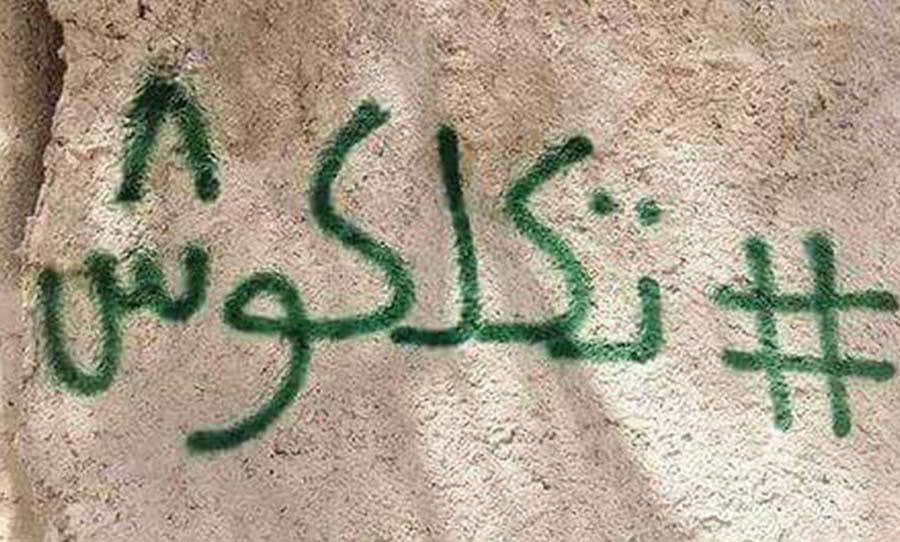 #تكلكوش